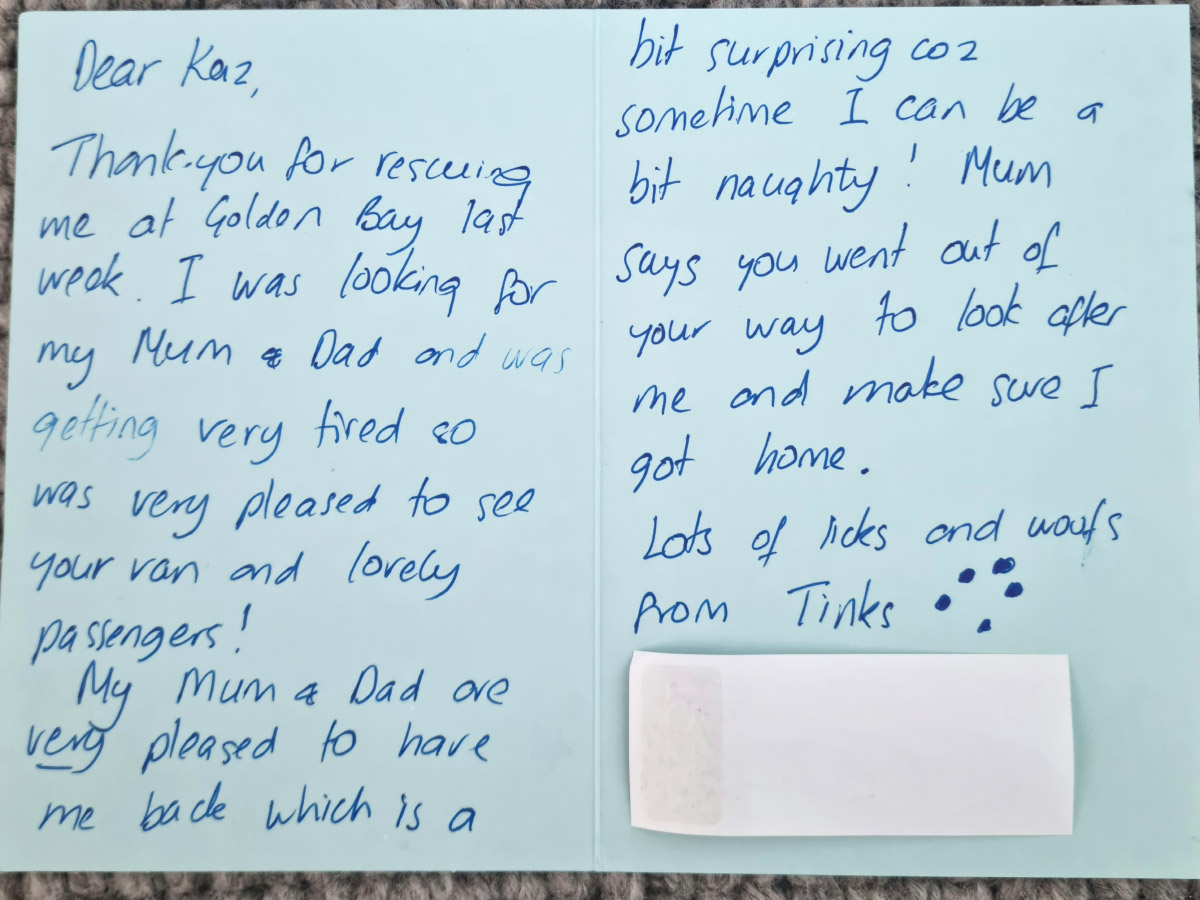 Dear Kaz,
Thank-you for rescuing
me at Golden Bay last
week. I was looking for
my Mum & Dad and was
getting very tired so
was very pleased to see
your van and lovely
passengers!
My Mum & Dad are
very pleased to have
me back which is a
bit surprising coz
sometime I can be a
bit naughty! Mum
says you went out of
your way to look after
me and make sure I
got home.
Lots of licks and woofs
from Tinks